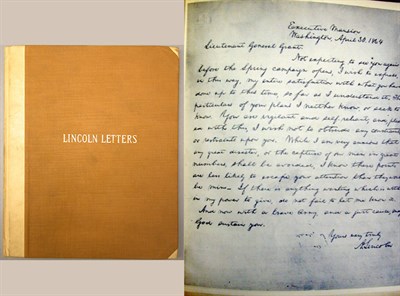 LINCOLN LETTERS
Executive Mansion
Washington, April 30, 1864
Lieutenant General Grant.
Not expecting to see you again
before the Spring campaign opens, I wish to express,
in this way, my entire satisfaction with what you have
done up to this time, so far as I understand it. The
particulars of your plans I neither know, or seek to
know. You are vigilant and self reliant; and, pleas
ed with this, I wish not to obtrude any constraints
or restraints upon you. While I am very anxious that
any great disaster, or the capture of our men in great
numbers, shall be avoided, I know these points
are less likely to escape your attention than they would
be mine. If there is anything wanting which is within
my power to give, do not fail to let me know it.
And now with a brave Army, and a just cause, may
God sustain you.
Yours very truly
A. Lincoln